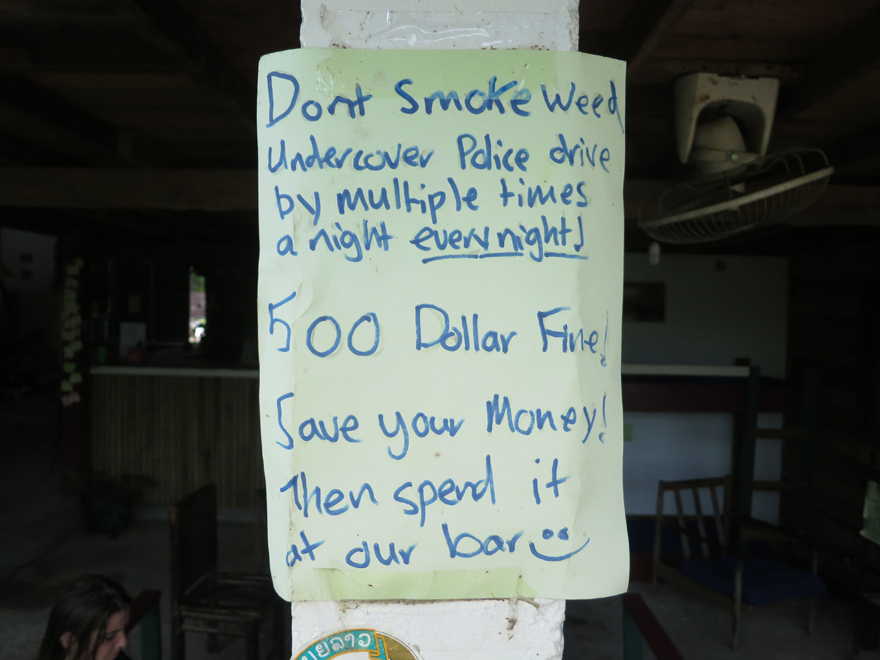 Dont Smoke Weed
Undercover Police drive
by multiple times
a night every night!
500 Dollar Fine!
Save your Money!
Then spend it
at our bar